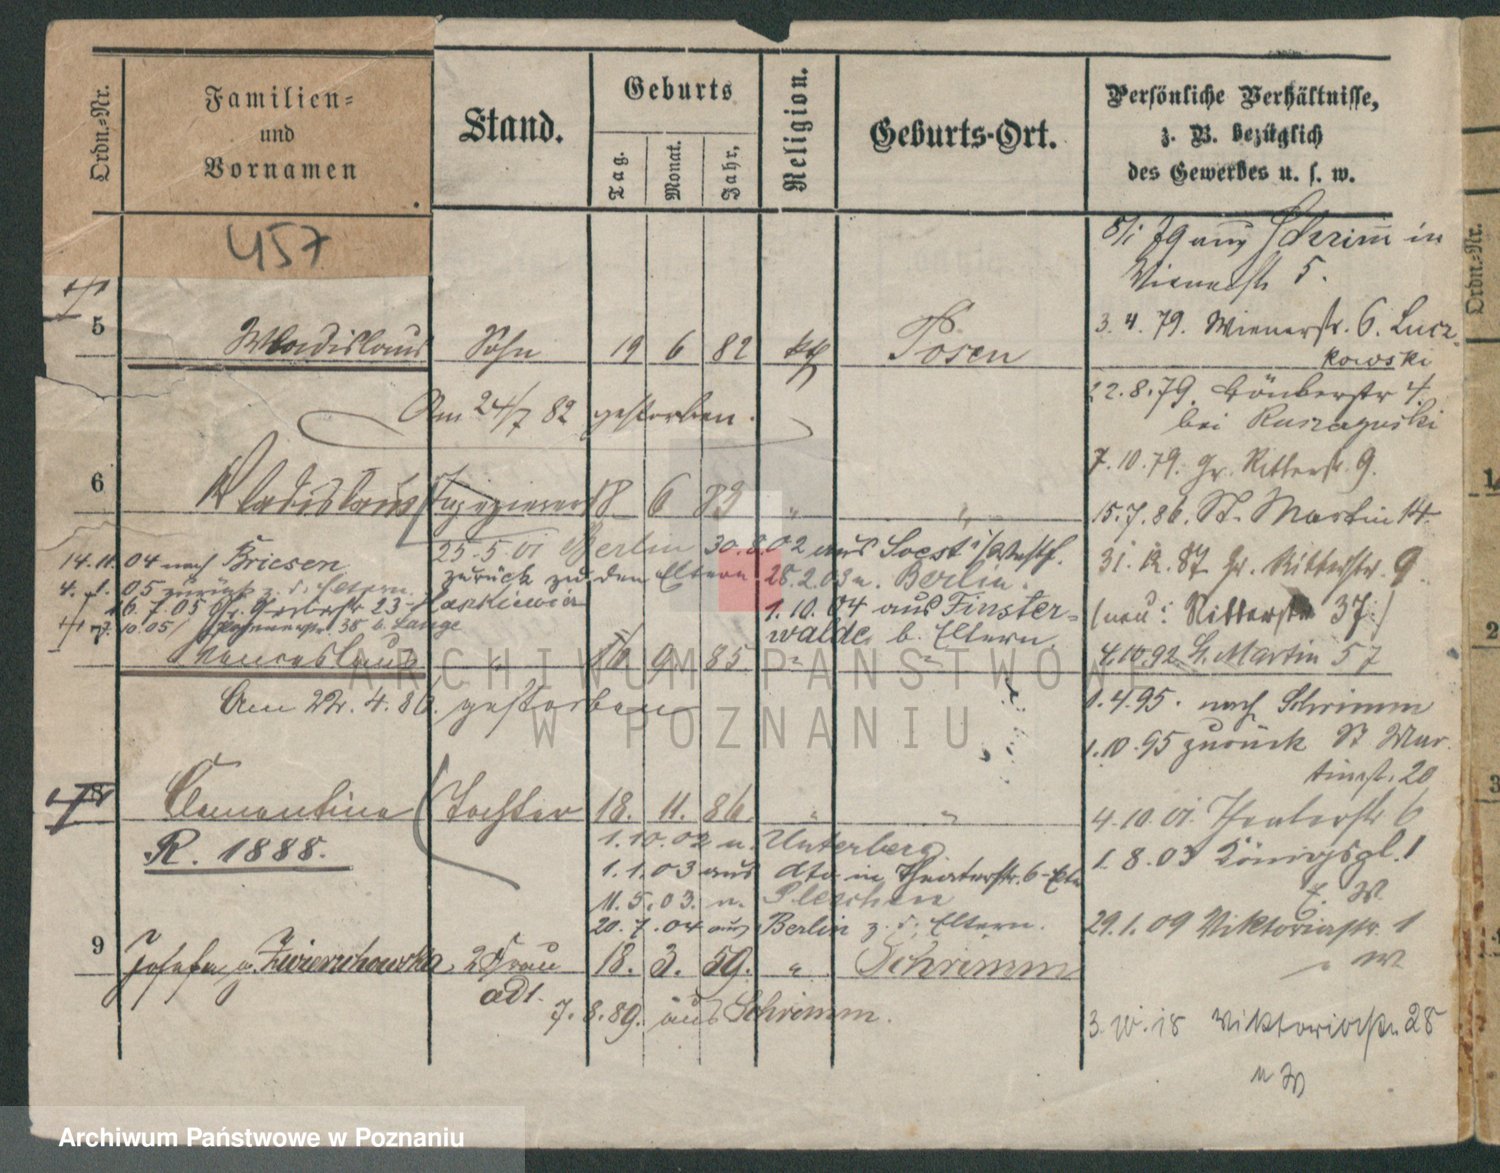 Ordn.-Nr.
Familien-
und
Vornamen
Stand.
Geburts
Tag.
Monat.
Jahr,
Religion.
Geburts-Ort.
Persönliche Verhältnisse,
z. B. bezüglich
des Gewerbes u. s. w.
457
8/1 79 aus Schrimm in
Wienerstr 5.
5 Wladislaus Sohn 19 6 82 kth Posen
3.4.79. Wienerstr. 6. Lucz-
kowski
Am 24/7 82 gestorben.
22.8.79. 4.
bei
7.10.79. Gr. Ritterstr. 9.
6 Wladislaus 18 6 83 " "
15.7.86. St. Martin 14.
25.5.01 Berlin 30.8.02 aus Soest i/Westf.
14.11.04 nach Briesen
zurück zu den Eltern 28.2.03 n. Berlin.
31.12.87 Gr. Ritterstr. 9
4.1.05 zurück z. d. Eltern.
6.7.05 Gr. 23
1.10.04 aus Finster-
walde b. Eltern.
(neu: Ritterstr 37.)
10.05 38 b. Lange
7 Wenceslaus " 9 85 " "
4.10.92 St. Martin 57
Am 22.4.86. gestorben
1.4.95. nach Schrimm
1.10.95 zurück St Mar-
tinstr. 20
8 Clementine Tochter 18. 11. 86 " "
4.10.01. Theaterstr 6
R. 1888.
1.10.02 n. Unterberg
1.1.03 aus dto in Theaterstr. 6-Elt.
1.8.03 Königspl. 1
11.5.03. n. Pleschen
E. W
20.7.04 aus Berlin z. d. Eltern.
29.1.09 Viktoriastr. 1
W
9 Josefa g. Zwierzchowska, 2 Frau 18. 3. 59. " Schrimm
ad 1.
7.8.89. aus Schrimm.
3. 18 Viktoriastr. 28
ARCHIWUM PAŃSTWOWE
W POZNANIU
Ordn.-Nr.
1
2
3
Archiwum Państwowe w Poznaniu